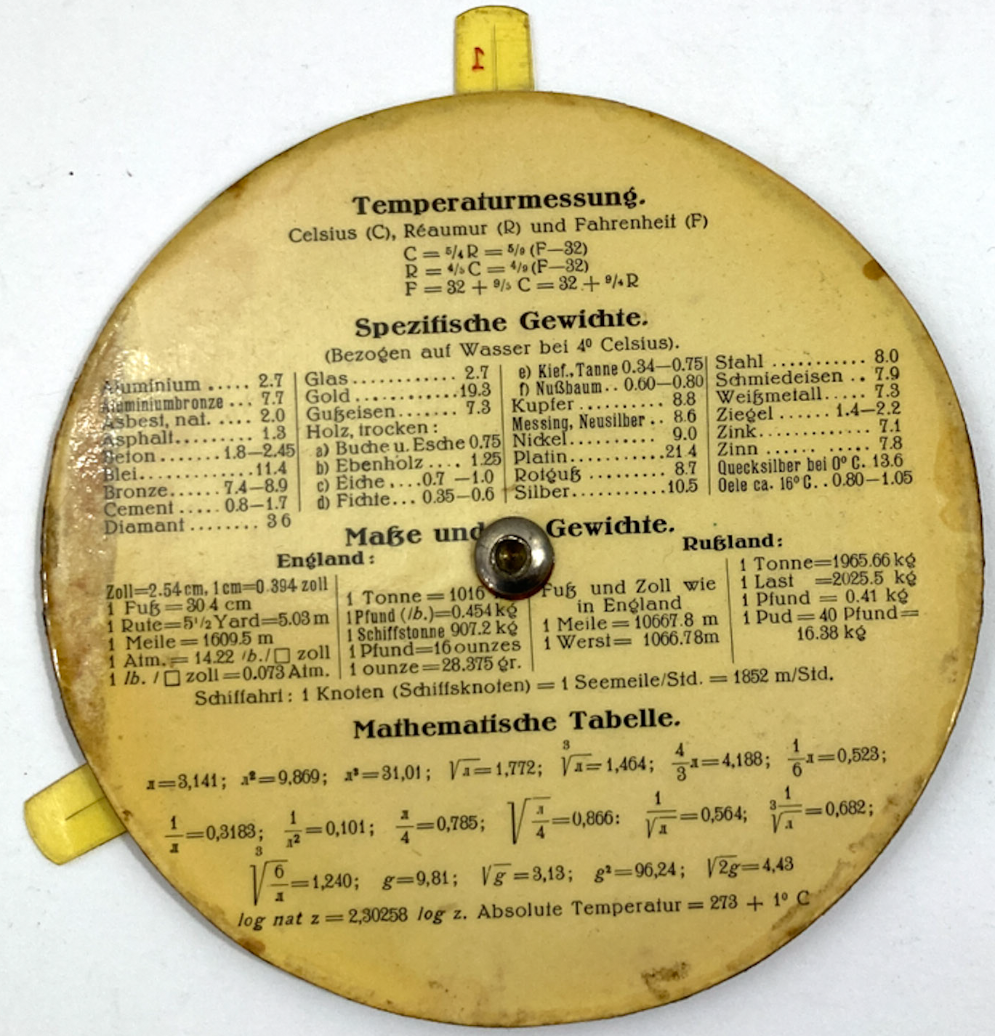 1
Temperaturmessung.
Celsius (C), Réaumur (R) und Fahrenheit (F)
C = 5/4 R = 5/9 (F—32)
R = 4/5 C = 4/9 (F—32)
F = 32 + 9/5 C = 32 + 9/4 R
Spezifische Gewichte.
(Bezogen auf Wasser bei 4⁰ Celsius).
Aluminium ..... 2.7
Aluminiumbronze ... 7.7
Asbest, nat. .... 2.0
Asphalt........ 1.3
Beton ....... 1.8—2.45
Blei............. 11.4
Bronze...... 7.4—8.9
Cement ..... 0.8—1.7
Diamant ........ 3 6
Glas ............ 2.7
Gold ............ 19.3
Gußeisen ....... 7.3
Holz, trocken :
a) Buche u. Esche 0.75
b) Ebenholz .... 1.25
c) Eiche ....0.7 —1.0
d) Fichte... 0.35—0.6
e) Kief., Tanne 0.34—0.75
f) Nußbaum.. 0.60—0.80
Kupfer .......... 8.8
Messing, Neusilber .. 8.6
Nickel........... 9.0
Platin...........21 4
Rotguß ......... 8.7
Silber...........10.5
Stahl ........... 8.0
Schmiedeisen .. 7.9
Weißmetall..... 7.3
Ziegel ...... 1.4—2.2
Zink............. 7.1
Zinn ............ 7.8
Quecksilber bei 0⁰ C. 13.6
Oele ca. 16⁰ C. . 0.80—1.05
Maße und Gewichte.
England :
Zoll=2.54 cm, 1 cm=0.394 zoll
1 Fuß = 30 4 cm
1 Rute=5¹/2 Yard=5.03 m
1 Meile = 1609.5 m
1 Atm. = 14.22 lb. / □ zoll
1 lb. / □ zoll = 0.073 Atm.
1 Tonne = 1016
1 Pfund (lb.)=0.454 kg
1 Schiffstonne 907.2 kg
1 Pfund=16 ounzes
1 ounze=28.375 gr.
Rußland :
Fuß und Zoll wie
in England
1 Meile = 10667.8 m
1 Werst= 1066.78m
1 Tonne=1965.66 kg
1 Last =2025.5 kg
1 Pfund = 0.41 kg
1 Pud = 40 Pfund=
16.38 kg
Schiffahrt : 1 Knoten (Schiffsknoten) = 1 Seemeile/Std. = 1852 m/Std.
Mathematische Tabelle.
π=3,141; π²=9,869; π³=31,01; √π=1,772; ³√π=1,464; 4/3 π=4,188; 1/6 π=0,523;
1/π=0,3183; 1/π²=0,101; π/4=0,785; √π/4=0,866: 1/√π=0,564; 1/³√π=0,682;
³√6/π=1,240; g=9,81; √g=3,13; g²=96,24; √2g=4,43
log nat z = 2,30258 log z. Absolute Temperatur = 273 + 1⁰ C